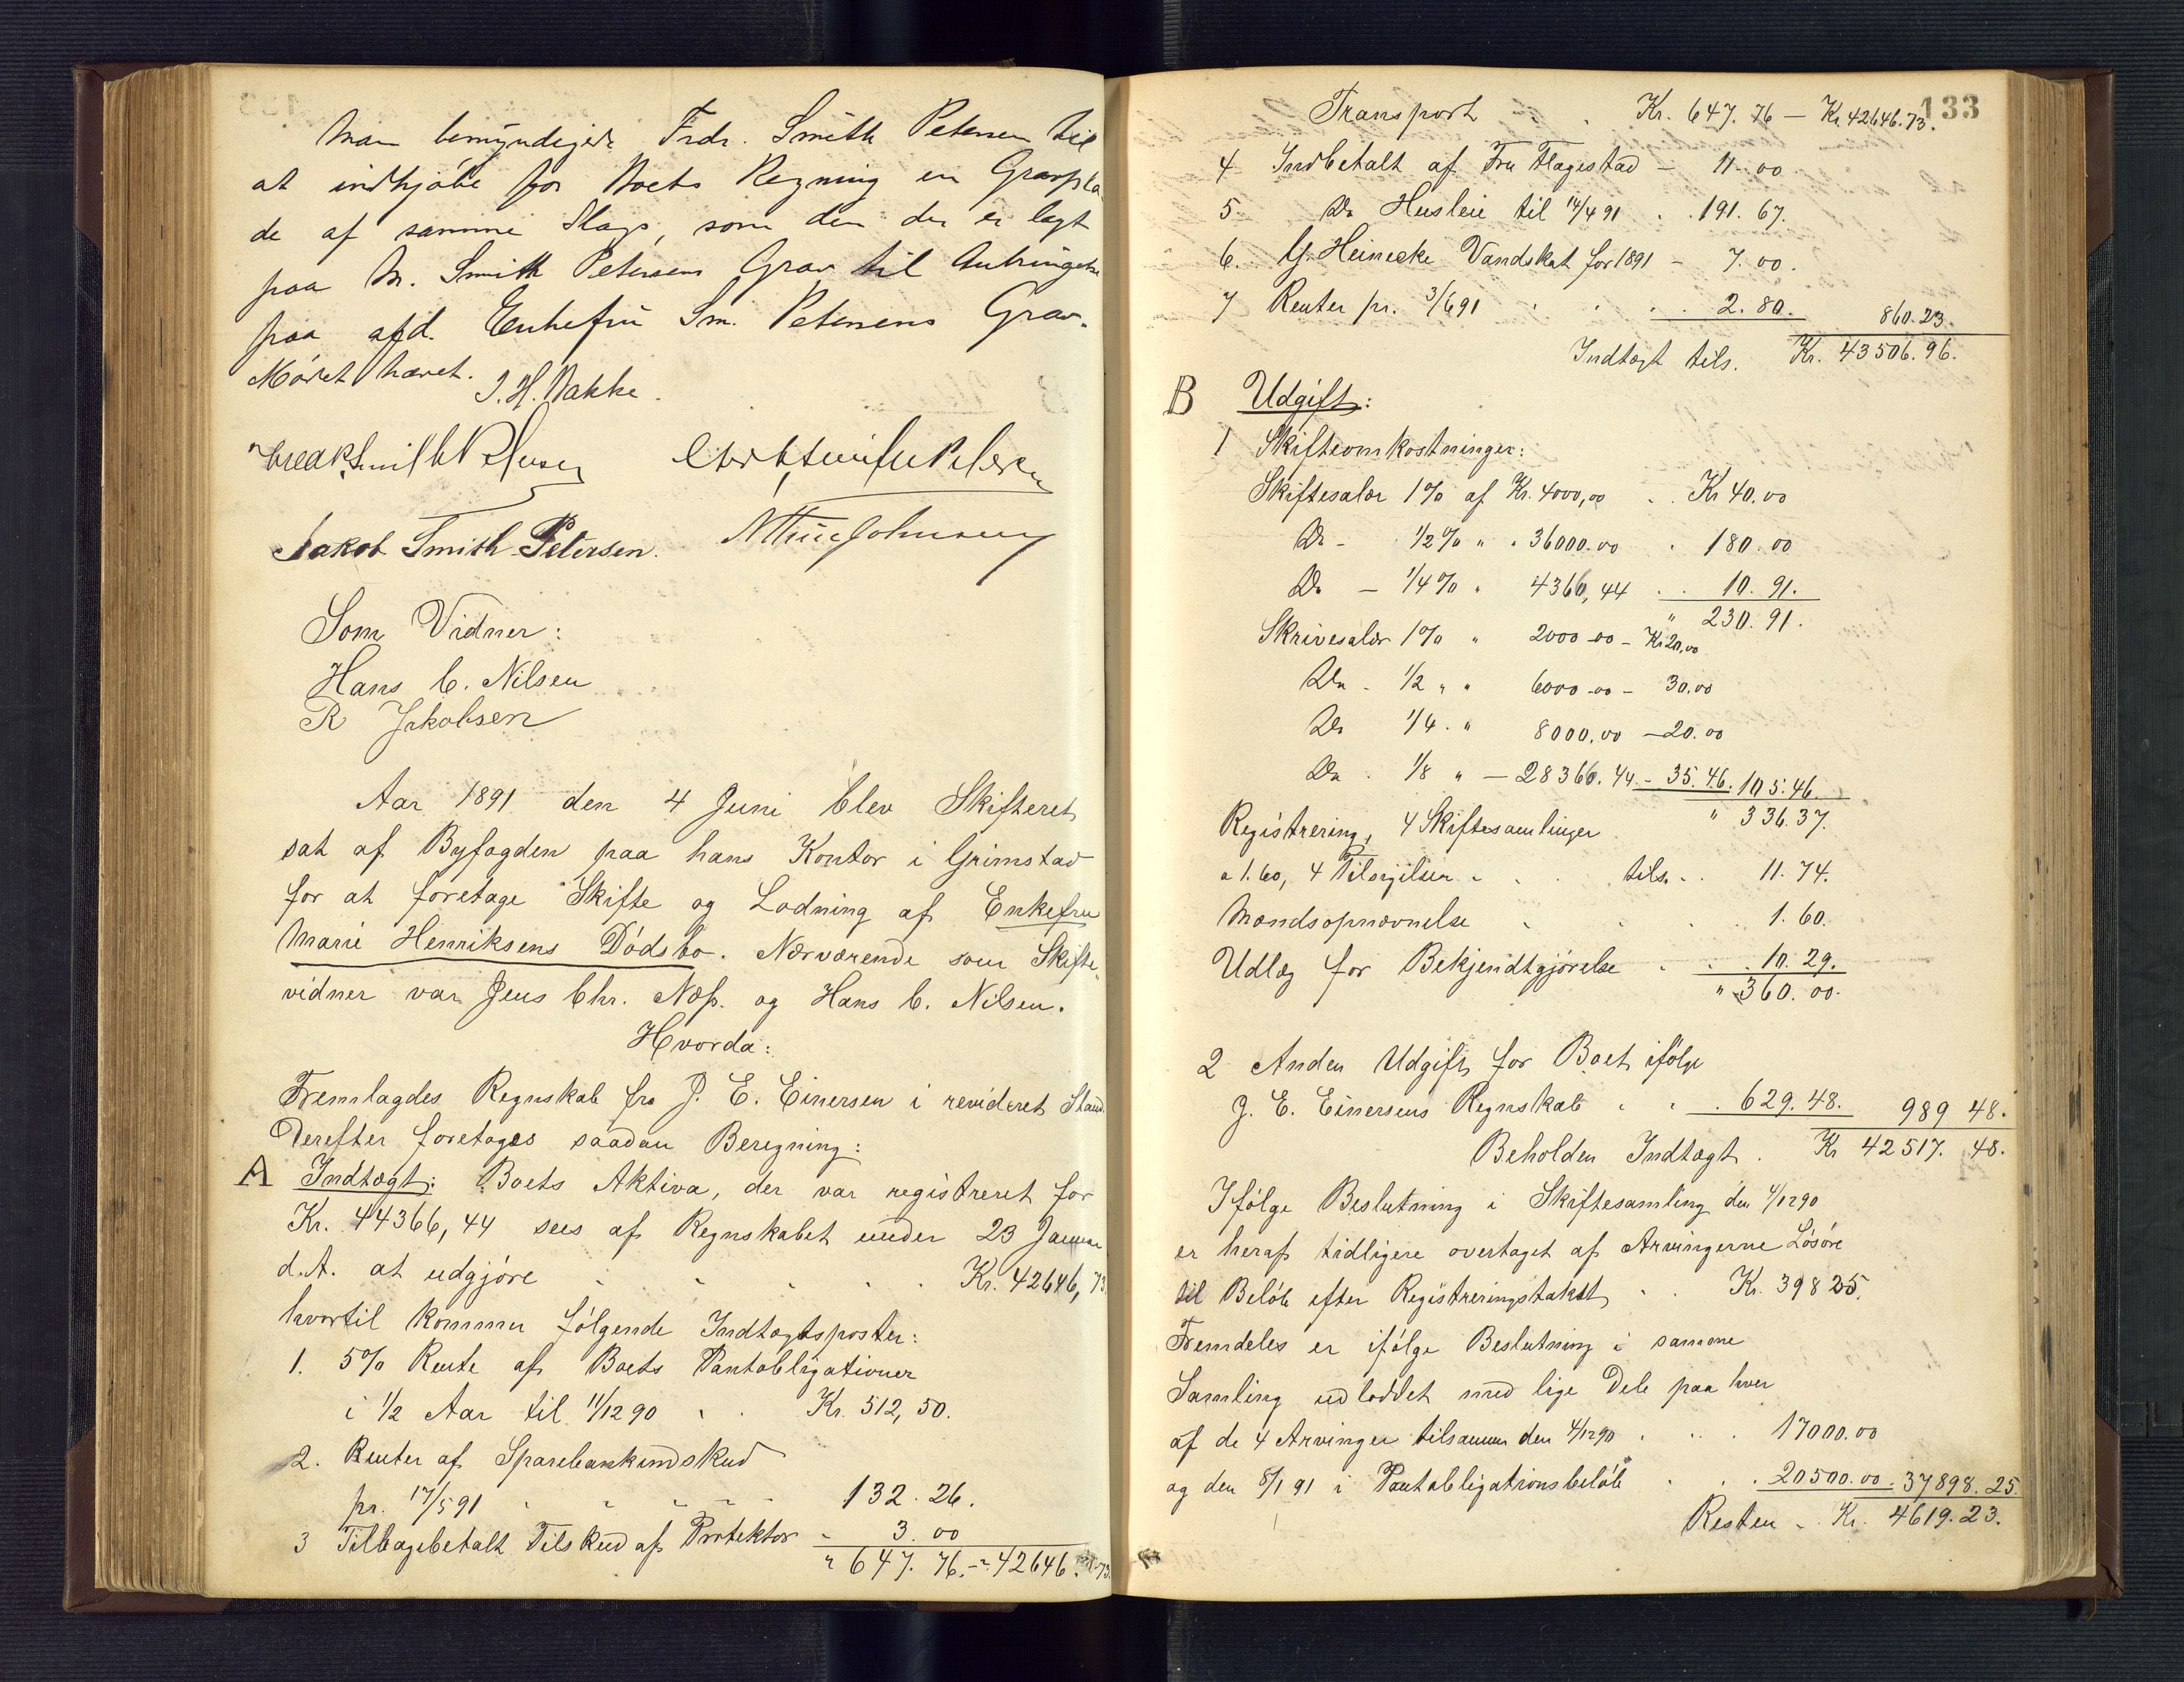 Man bemyndigede Frdr. Smith Petersen til
at indkjøbe for Boets Regning en Gravpla
de af samme Slags, som den der er lagt
paa M. Smith Petersens Grav til Anbringelse
paa afd. Enkefru Sm. Petersens Grav.
Mødet hævet.
J. H. Bakke.
Jakob Smith-Petersen.
Som Vidner:
Hans C. Nilsen
R Jakobsen
Aar 1891 den 4 Juni blev Skifteret
sat af Byfogden paa hans Kontor i Grimstad
for at foretage Skifte og Lodning af Enkefru
Marie Henriksens Dødsbo. Nærværende som Skifte-
vidner var Jens Chr. Næss. og Hans C. Nilsen.
Hvorda:
Fremlagdes Regnskab fra J. E. Einersen i revideret Stand.
Derefter foretoges saadan Beregning:
A Indtægt: Boets Aktiva, der var registreret for
Kr. 44366,44 sees af Regnskabet under 23 Januar
d.A. at udgjøre Kr. 42646,73
hvortil kommer følgende Indtægtsposter:
1. 5% Rente af Boets Pantobligationer
i 1/2 Aar til 11/12 90 Kr. 512,50.
2. Renter af Sparebankindskud
pr. 17/5 91 132.26.
3 Tilbagebetalt Tilskud af Protektor - 3.00
" 647.76. - " 42646.73.
133
Transport Kr. 647.76 - Kr. 42646.73.
4 Indbetalt af Fru Flagestad - 11.00
5. Do Husleie til 14/4 91 . . 191.67.
6. G. Heinecke Vandskat for 1891 - 7.00.
7 Renter pr. 3/6 91 . . . . 2.80. 860.23.
Indtægt tils. Kr. 43506.96.
B Udgift:
1 Skifteomkostninger:
Skiftesalær 1% af Kr. 4000,00 . . Kr 40.00
Do - 1/2% " . 36000.00 . 180.00
Do - 1/4% " 4366,44 . . 10.91.
" 230.91.
Skrivesalær 1% " 2000-00 - Kr 20,00
Do - 1/2 " " 6000-00 - 30.00
Do 1/4 . " 8000.00 - 20.00
Do . 1/8 " - 28366.44 - 35.46. 105.46.
" 336.37.
Registrering, 4 Skiftesamlinger
a 1.60, 4 Tilsigelser . . . tils. . 11.74.
Mandsopnævnelse . . . 1.60.
Udlæg for Bekjendtgjørelse . . . 10.29.
" 360.00.
2 Anden Udgift for Boet ifølge
J. E. Einersens Regnskab . . . 629.48. 989 48.
Beholden Indtægt . Kr 42517.48.
Ifølge Beslutning i Skiftesamling den 4/12 90
er heraf tidligere overtaget af Arvingerne Løsøre
til Beløb efter Registreringstakst . . Kr. 398 25.
Fremdeles er ifølge Beslutning i samme
Samling udloddet med lige Dele paa hver
af de 4 Arvinger tilsammen den 4/12 90 . . . 17000.00
og den 8/1 91 i Pantobligationsbeløb . . . 20500.00. 37898.25.
Resten . Kr. 4619.23.